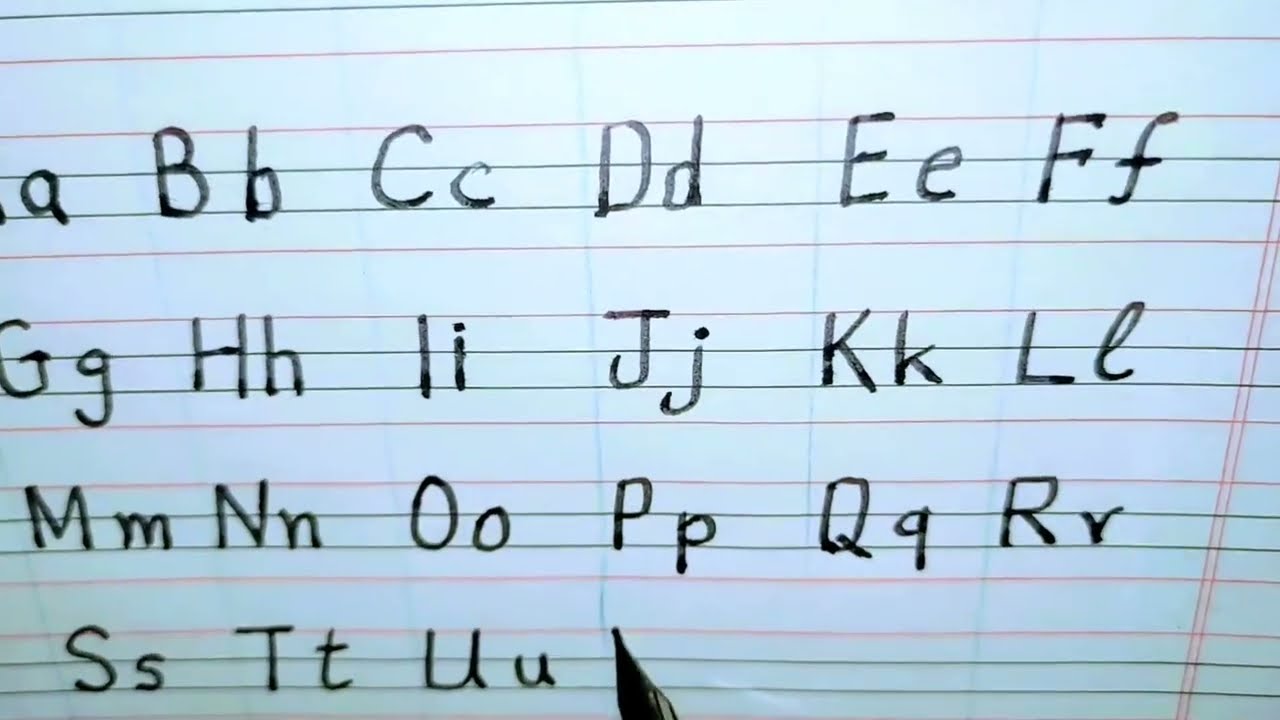 a Bb Cc Dd Ee Ff
Gg Hh Ii Jj Kk Ll
Mm Nn Oo Pp Qq Rr
Ss Tt Uu